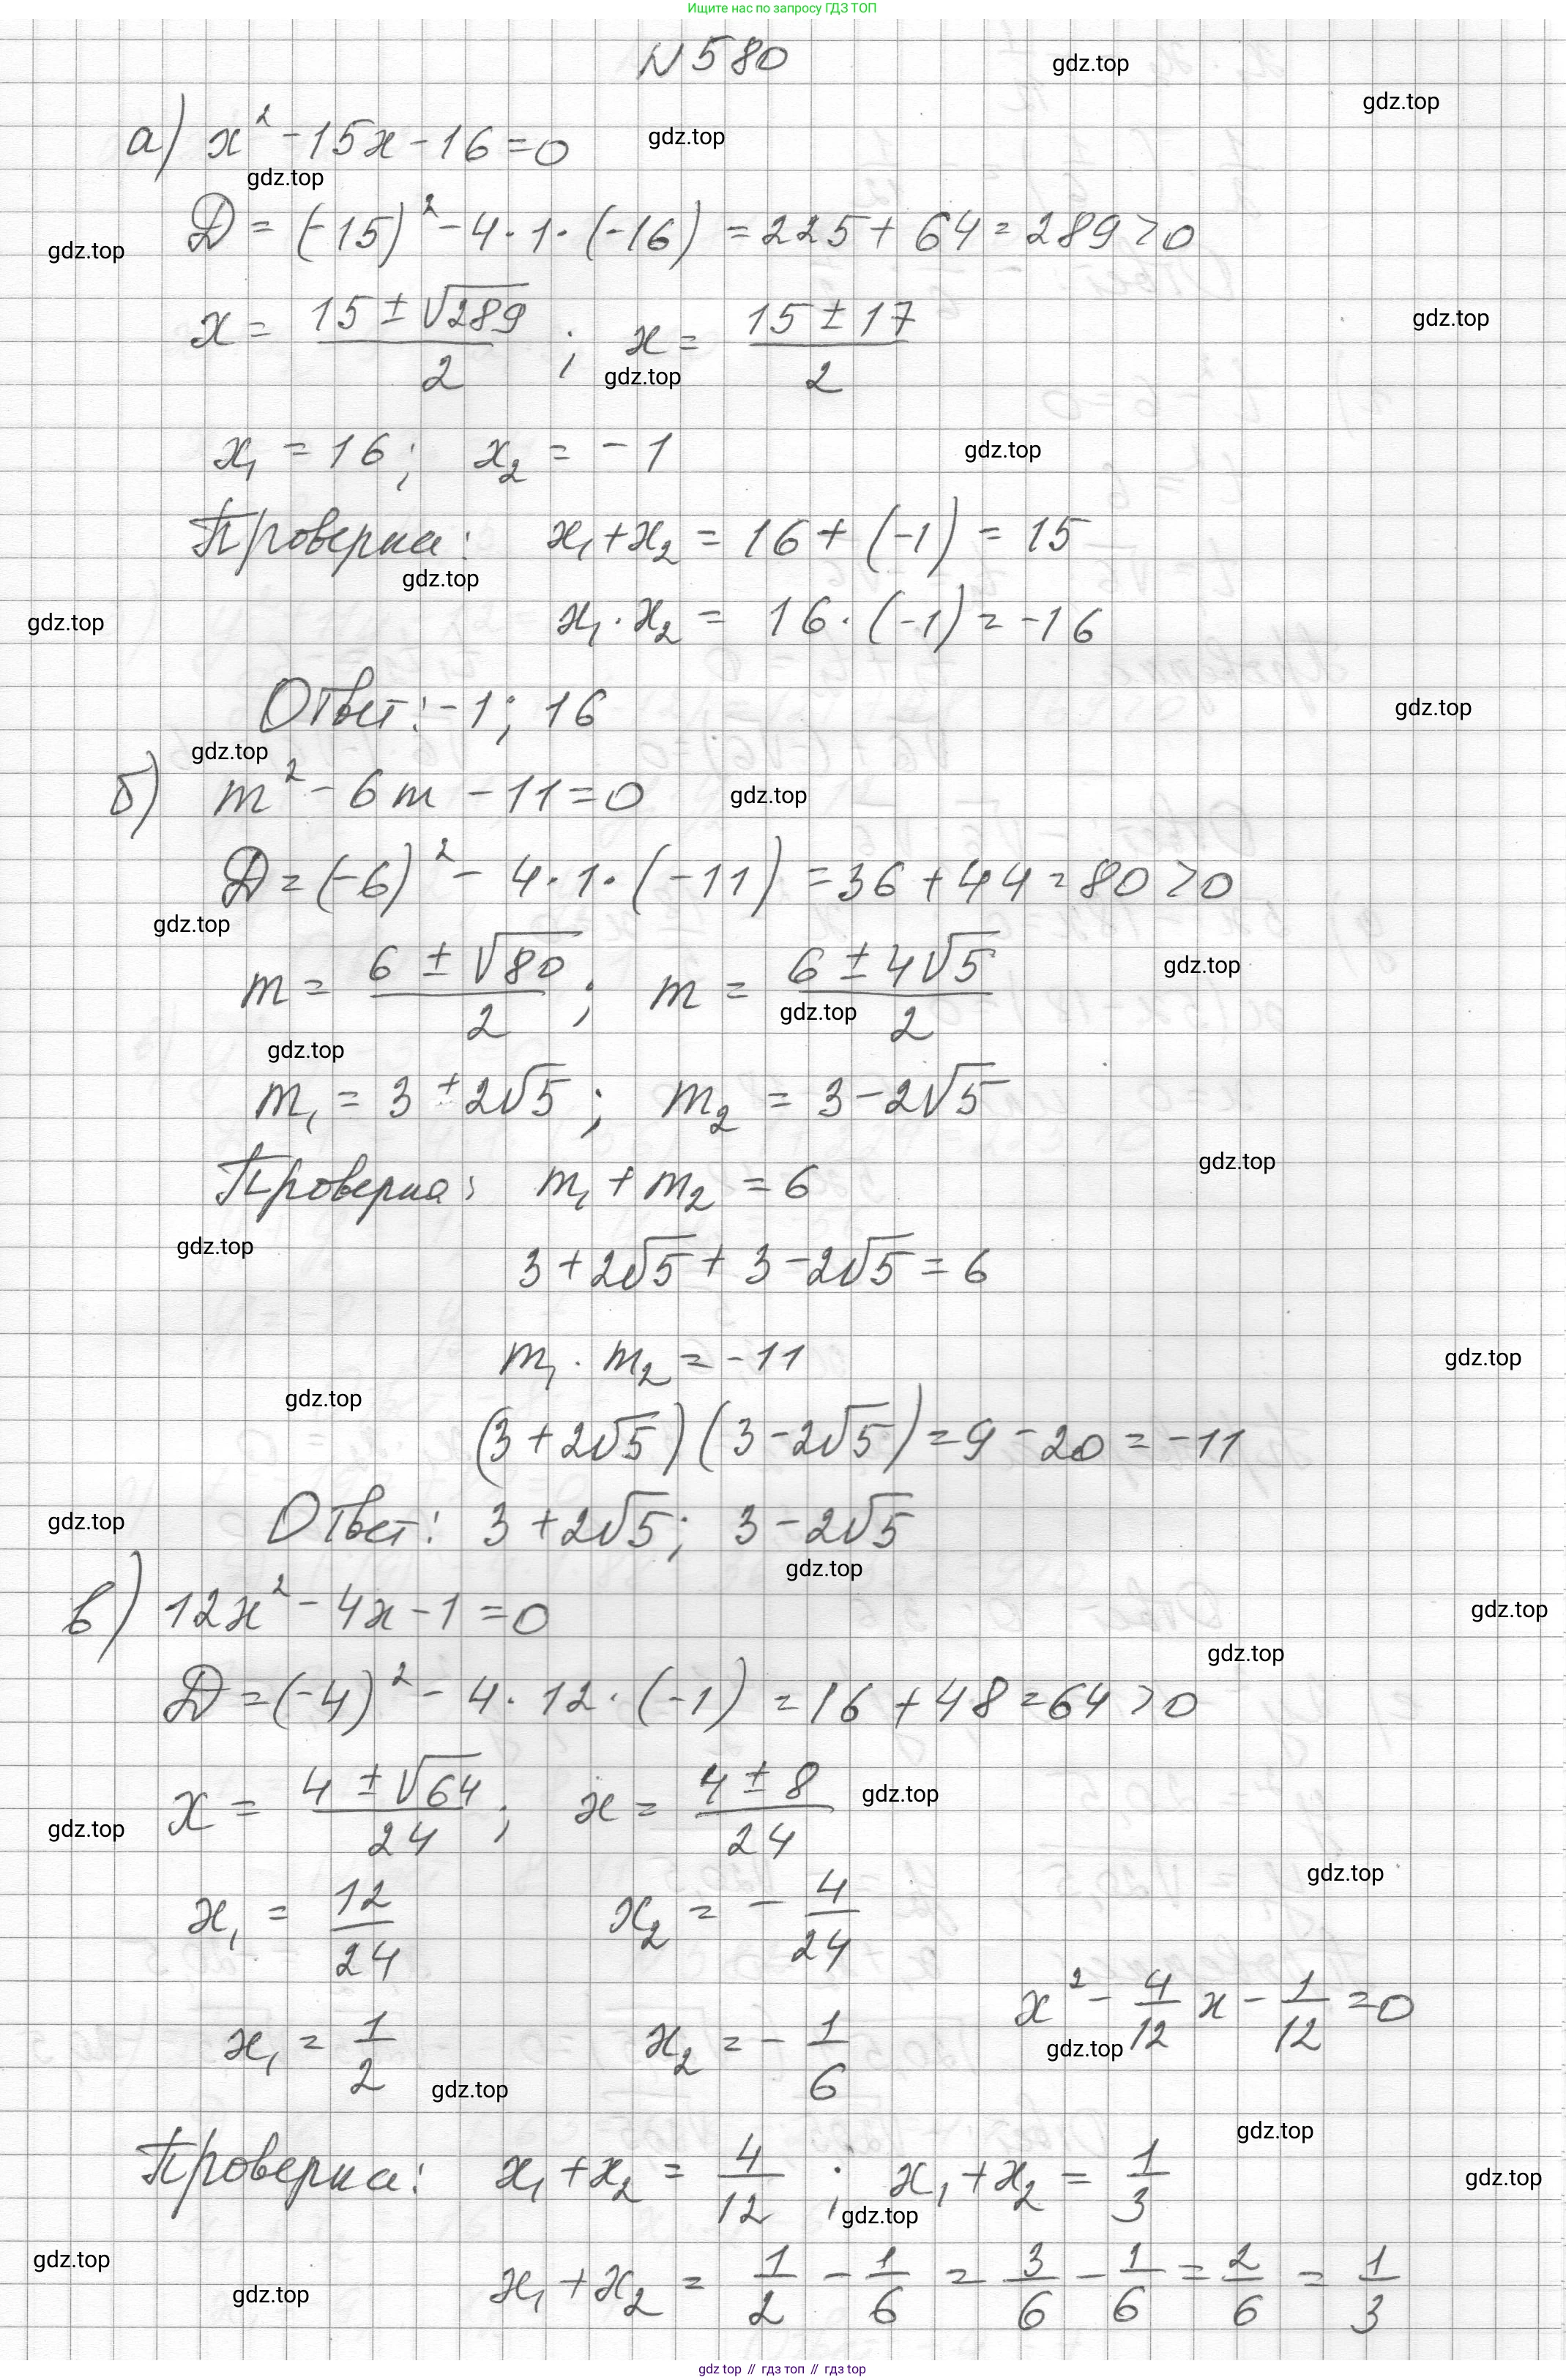 Ищите нас по запросу ГДЗ ТОП
N 580
gdz.top
gdz.top
а) x² - 15x - 16 = 0
gdz.top
gdz.top
D = (-15)² - 4·1·(-16) = 225 + 64 = 289 > 0
gdz.top
x = (15 ± √289)/2 ; x = (15 ± 17)/2
gdz.top
gdz.top
x₁ = 16; x₂ = -1
gdz.top
Проверка: x₁ + x₂ = 16 + (-1) = 15
gdz.top
x₁ · x₂ = 16 · (-1) = -16
gdz.top
Ответ: -1; 16
gdz.top
gdz.top
б) m² - 6m - 11 = 0
gdz.top
D = (-6)² - 4·1·(-11) = 36 + 44 = 80 > 0
gdz.top
m = (6 ± √80)/2 ; m = (6 ± 4√5)/2
gdz.top
gdz.top
gdz.top
m₁ = 3 ± 2√5 ; m₂ = 3 - 2√5
Проверка: m₁ + m₂ = 6
gdz.top
gdz.top
3 + 2√5 + 3 - 2√5 = 6
m₁ · m₂ = -11
gdz.top
gdz.top
(3 + 2√5)(3 - 2√5) = 9 - 20 = -11
Ответ: 3 + 2√5; 3 - 2√5
gdz.top
gdz.top
в) 12x² - 4x - 1 = 0
gdz.top
gdz.top
D = (-4)² - 4·12·(-1) = 16 + 48 = 64 > 0
x = (4 ± √64)/24 ; x = (4 ± 8)/24
gdz.top
gdz.top
gdz.top
x₁ = 12/24 x₂ = - 4/24
x₁ = 1/2 x₂ = - 1/6 x² - 4/12 x - 1/12 = 0
gdz.top
gdz.top
gdz.top
Проверка: x₁ + x₂ = 4/12 ; x₁ + x₂ = 1/3
gdz.top
gdz.top
gdz.top
gdz.top
x₁ + x₂ = 1/2 - 1/6 = 3/6 - 1/6 = 2/6 = 1/3
gdz top // гдз топ // gdz top